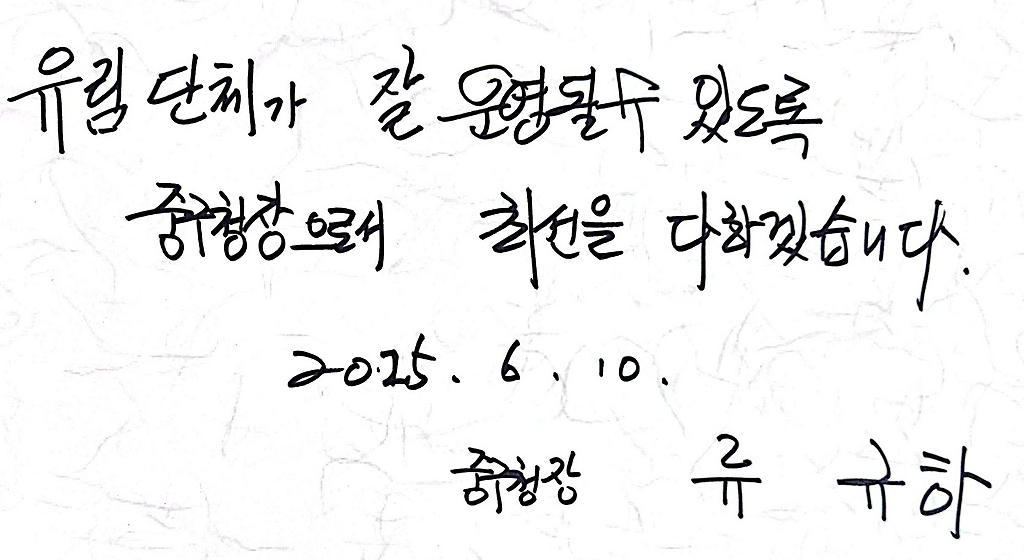 유림 단체가 잘 운영될수 있도록
중구청장으로서 최선을 다하겠습니다.
2025. 6. 10.
중구청장 류규하